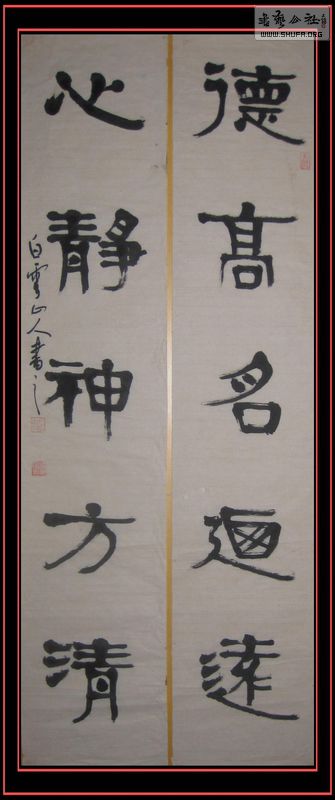 德髙名迴遠
心靜神方清
白雲山人書之
書藝公社
WWW.SHUFA.ORG